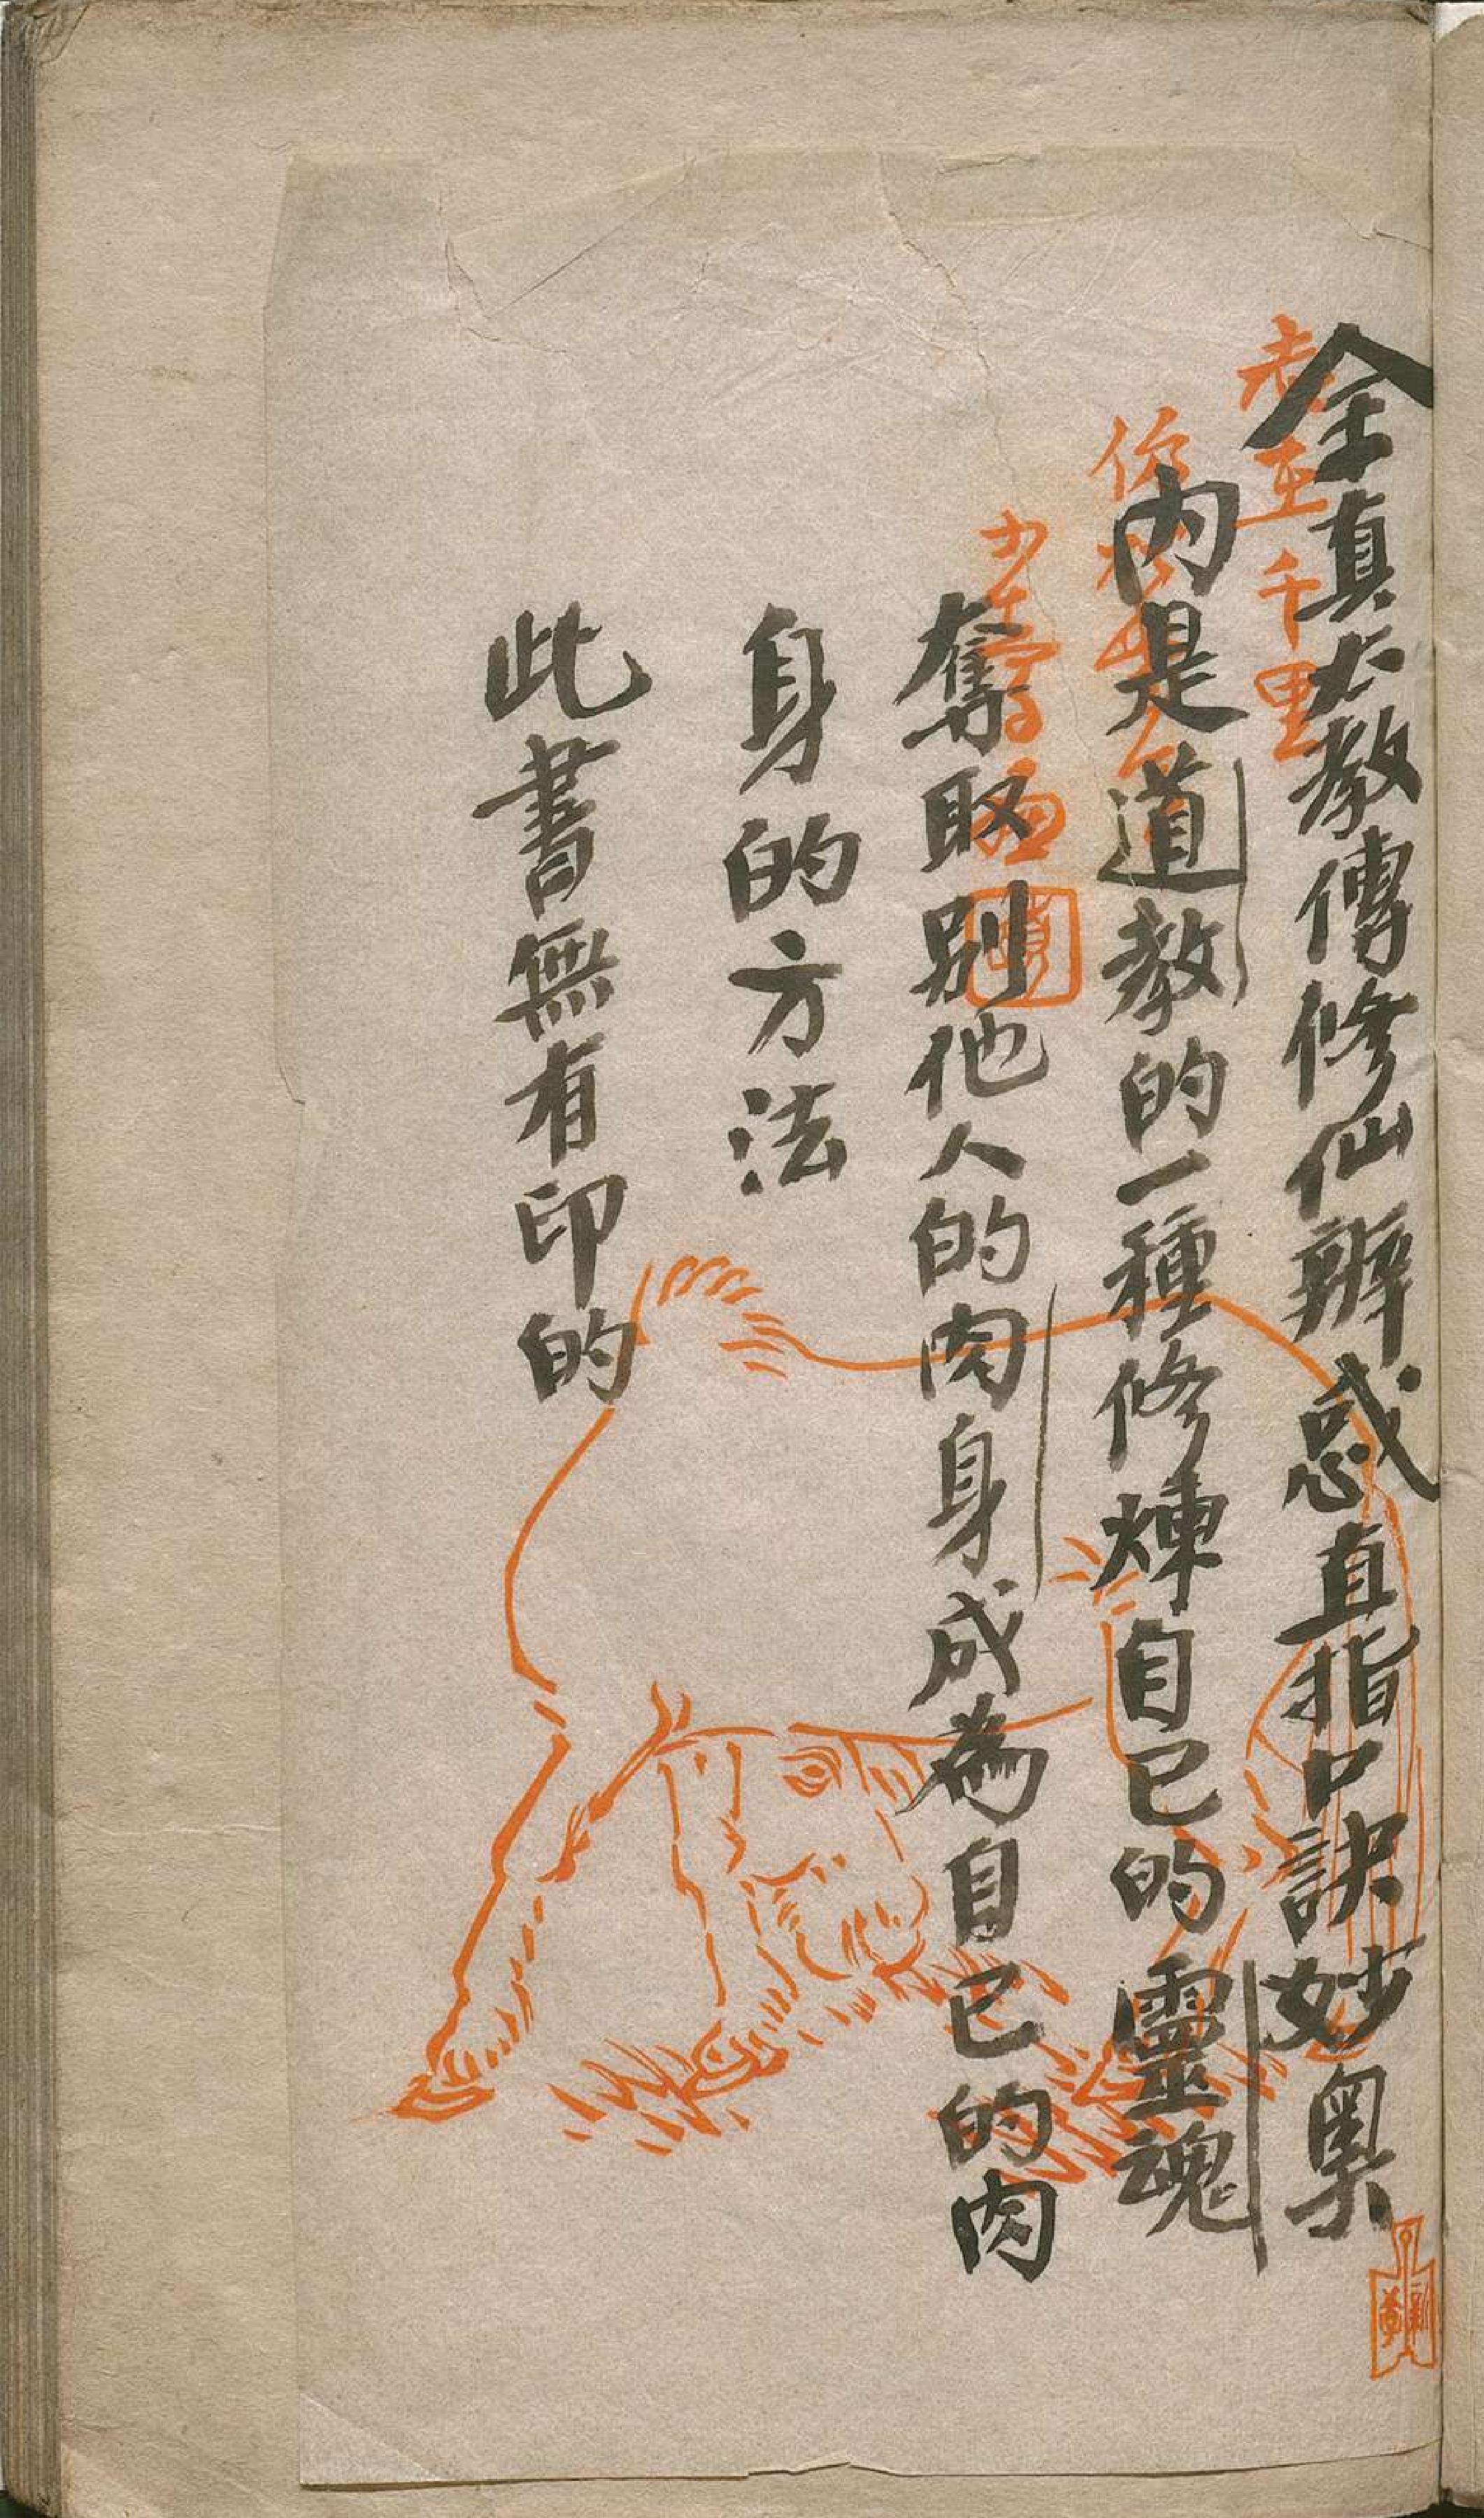 全真大教傳修仙辨惑直指口訣妙奧
內是道教的一種修煉自已的靈魂
奪取別他人的肉身成為自已的肉
身的方法
此書無有印的
老至千里